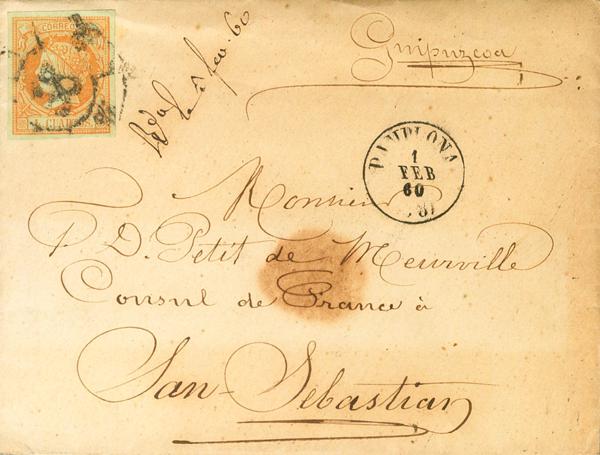 CORREOS
4 CUARTOS
feb 60
Guipuzcoa
PAMPLONA
1
FEB
60
Monsieur
P. D. Petit de Meurville
Consul de France à
San-Sebastian